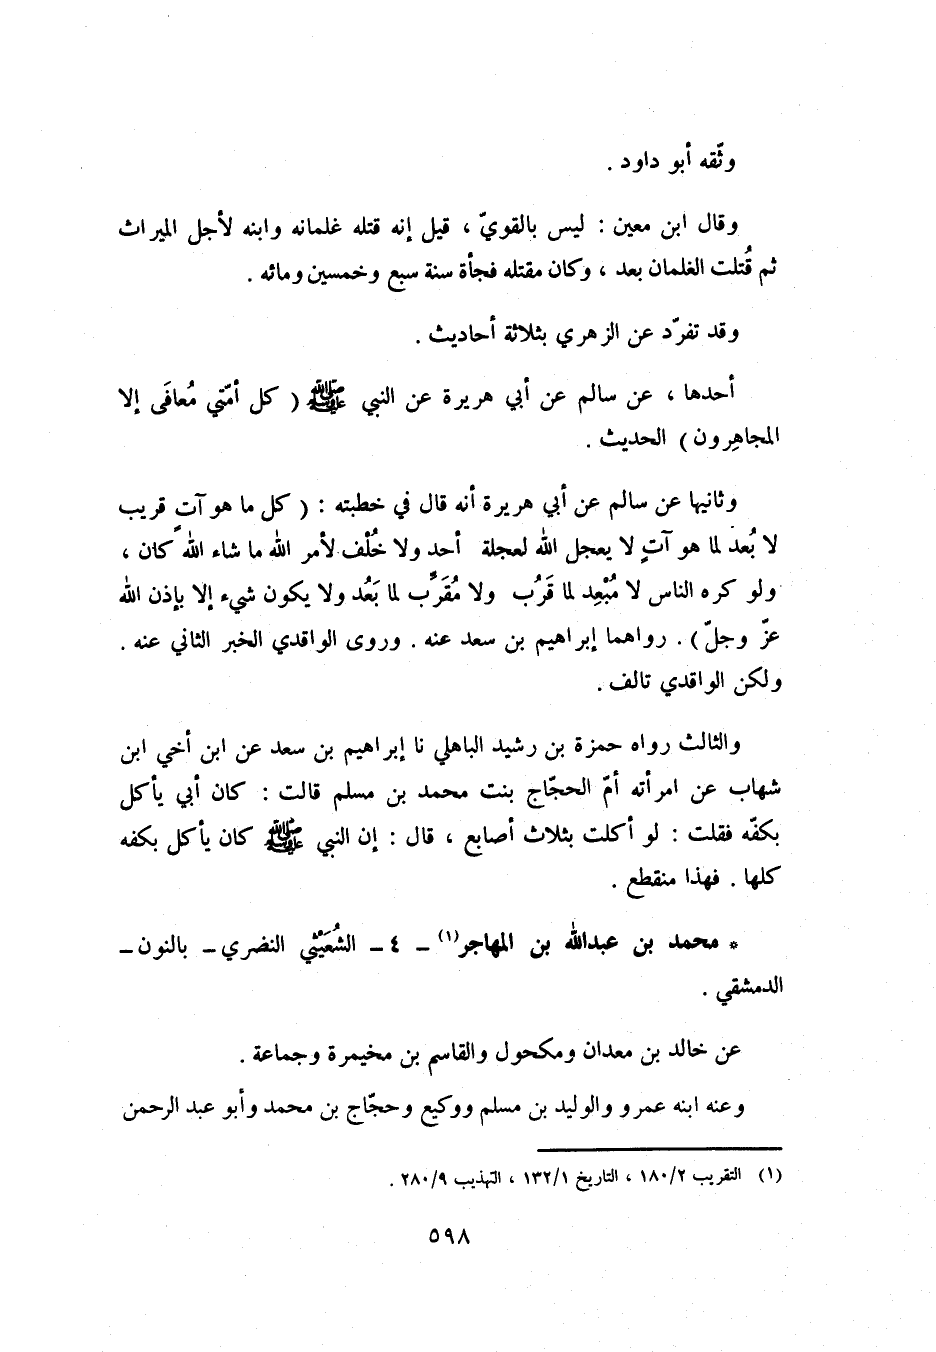 وثّقه أبو داود .
وقال ابن معين : ليس بالقويّ ، قيل إنه قتله غلمانه وابنه لأجل الميراث
ثم قُتلت الغلمان بعد ، وكان مقتله فجأة سنة سبع وخمسين ومائه .
وقد تفرّد عن الزهري بثلاثة أحاديث .
أحدها ، عن سالم عن أبي هريرة عن النبي ﷺ ( كل أمّتي مُعافَى إلا
المجاهِرون ) الحديث .
وثانيها عن سالم عن أبي هريرة أنه قال في خطبته : ( كل ما هو آتٍ قريب
لا بُعد لما هو آتٍ لا يعجل الله لعجلة أحد ولا خُلْف لأمر الله ما شاء الله كان ،
ولو كره الناس لا مُبْعِد لما قَرُب ولا مُقَرِّب لما بَعُد ولا يكون شيء إلا بإذن الله
عزّ وجلّ ) . رواهما إبراهيم بن سعد عنه . وروى الواقدي الخبر الثاني عنه .
ولكن الواقدي تالف .
والثالث رواه حمزة بن رشيد الباهلي نا إبراهيم بن سعد عن ابن أخي ابن
شهاب عن امرأته أمّ الحجّاج بنت محمد بن مسلم قالت : كان أبي يأكل
بكفّه فقلت : لو أكلت بثلاث أصابع ، قال : إن النبي ﷺ كان يأكل بكفه
كلها . فهذا منقطع .
* محمد بن عبدالله بن المهاجر(١) ــ ٤ ــ الشُعَيْثي النضري ــ بالنون ــ
الدمشقي .
عن خالد بن معدان ومكحول والقاسم بن مخيمرة وجماعة .
وعنه ابنه عمرو والوليد بن مسلم ووكيع وحجّاج بن محمد وأبو عبد الرحمن
(١) التقريب ١٨٠/٢ ، التاريخ ١٣٢/١ ، التهذيب ٢٨٠/٩ .
٥٩٨